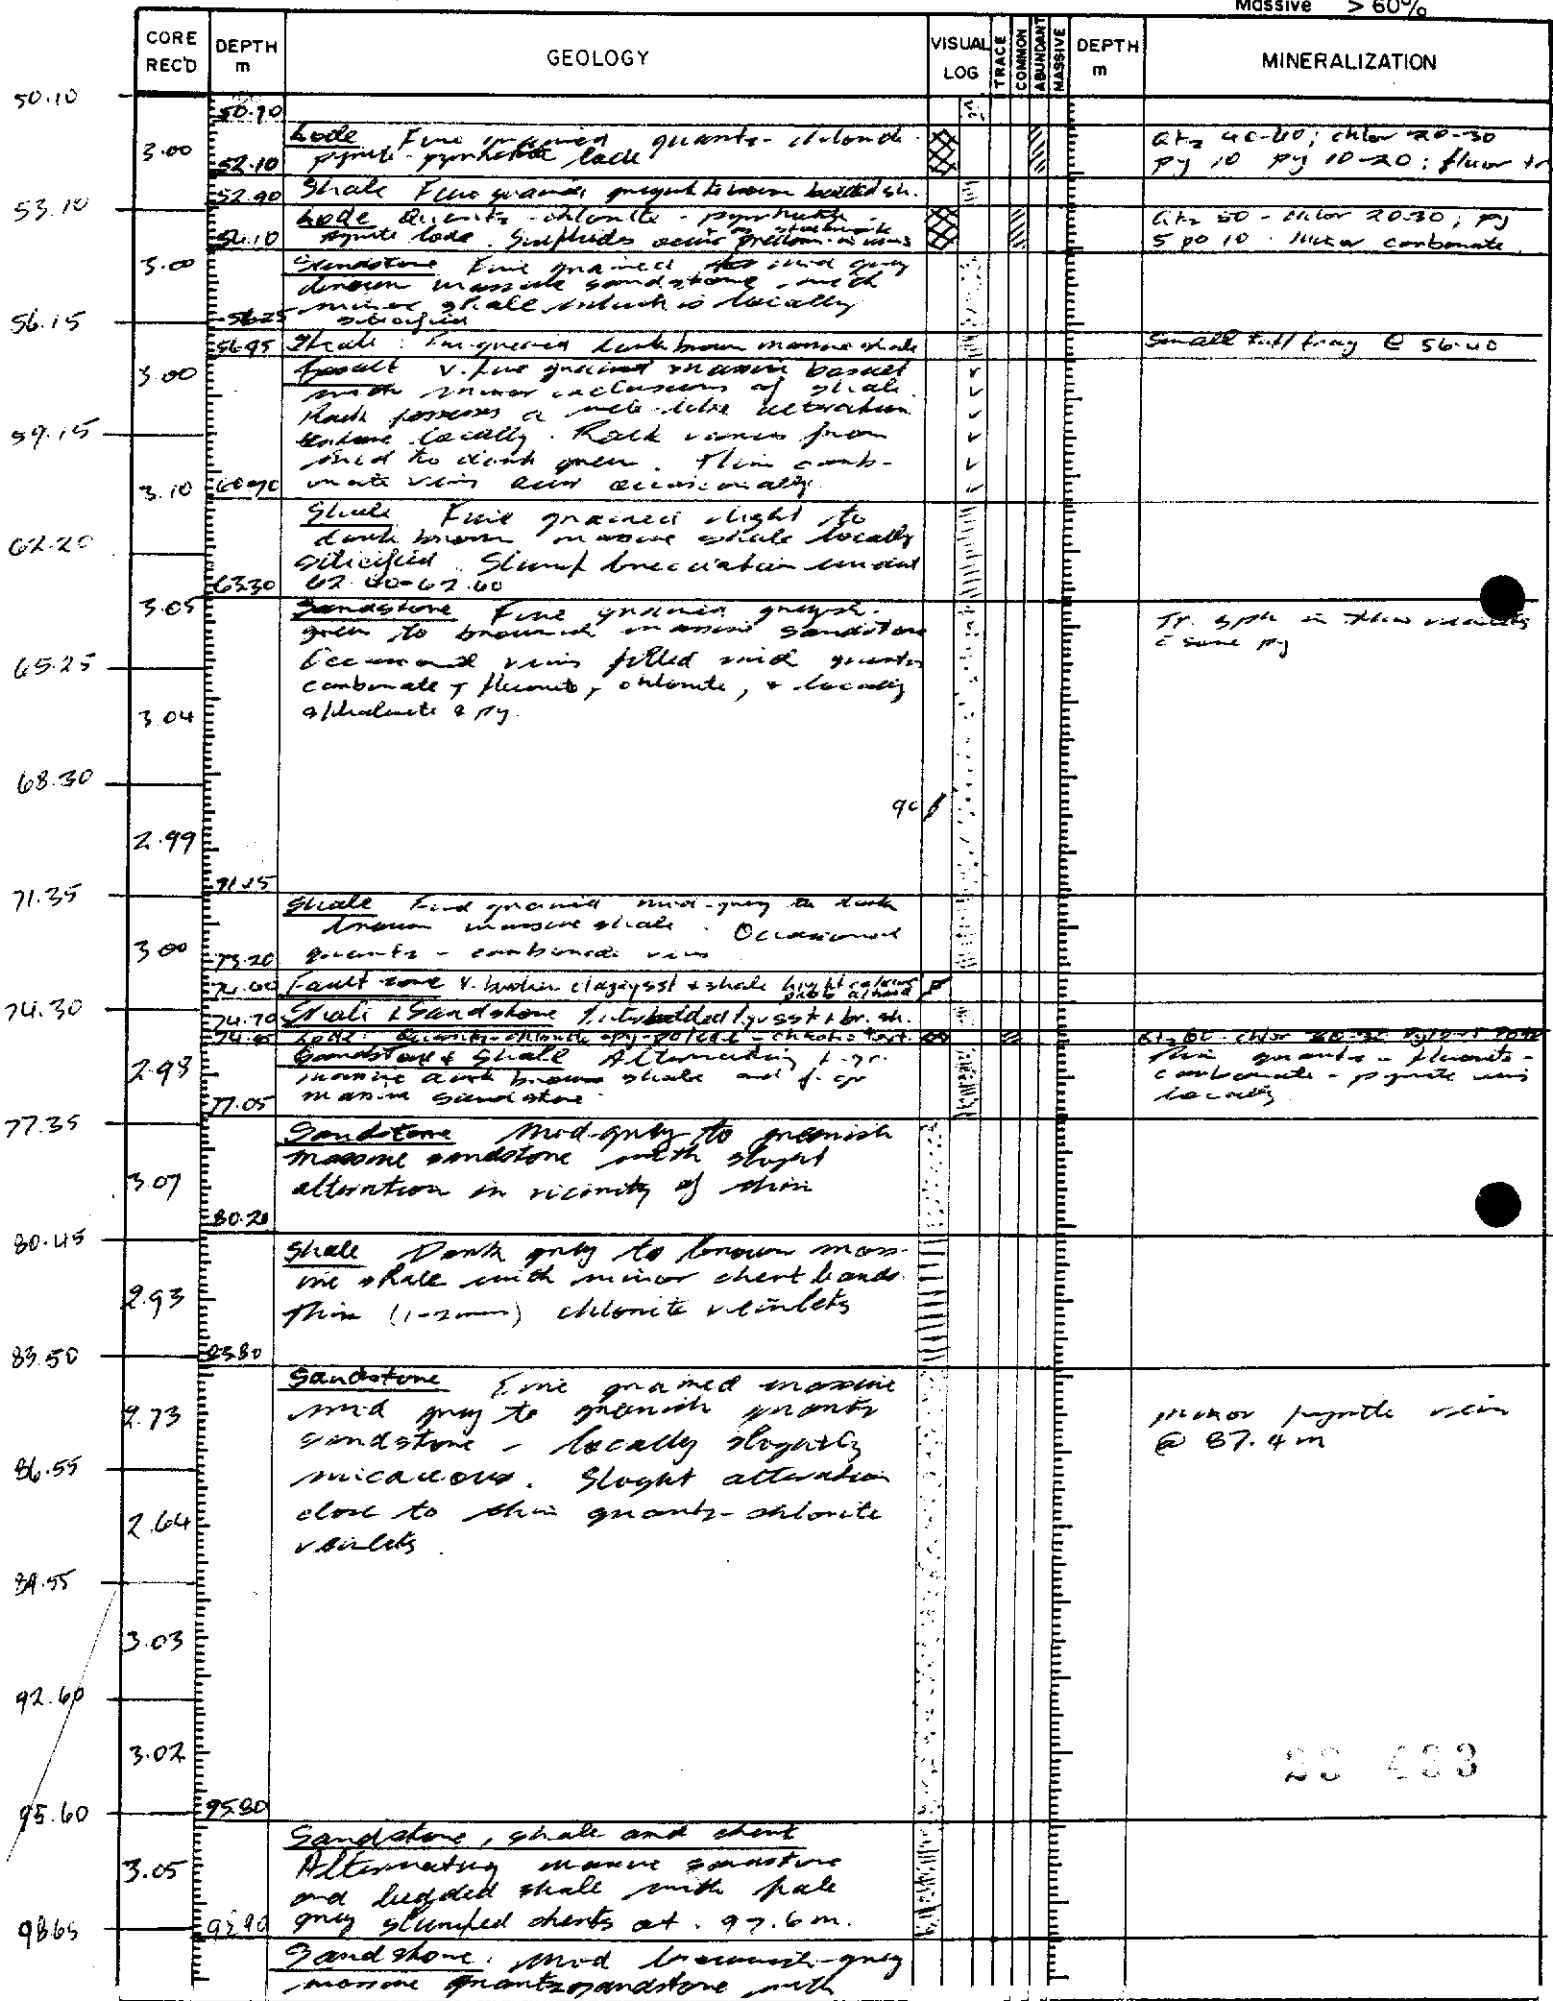 Massive > 60%
CORE REC'D
DEPTH m
GEOLOGY
VISUAL LOG
TRACE
COMMON
ABUNDANT
MASSIVE
DEPTH m
MINERALIZATION
50.10
3.00
52.10
Lode Fine grained quartz-
lode
Qtz; chlor 20-30
py 10 py 10-20; fluor tr
52.90
Shale Fine grained
53.10
54.10
Lode Quartz-chlorite-pyrrhotite-
pyrite lode. Sulphides occur
Qtz 50 - chlor 20-30; py
5 po 10. Minor carbonate
3.00
Sandstone Fine grained mid grey
brown massive sandstone with
minor shale which is locally
silicified
56.15
56.25
56.95
Shale: Fine grained dark brown massive shale
Small tuff frag @ 56.40
3.00
Basalt v. fine grained massive basalt
with minor inclusions of shale.
Rock possesses a alteration
texture locally. Rock varies from
mid to dark green. Thin carb-
onate veins occur occasionally
59.15
3.10
Shale Fine grained light to
dark brown massive shale locally
silicified. Slump brecciation
62.40-62.60
62.20
63.30
3.05
Sandstone Fine grained greyish-
green to brownish massive sandstone
Occasional veins filled with quartz
carbonate + fluorite, chlorite, + locally
sphalerite & py.
Tr. sph in thin veinlets
c some py
65.25
3.04
68.30
qc
2.99
71.35
Shale Fine grained mid-grey to dark
brown massive shale. Occasional
quartz-carbonate veins
3.00
73.20
Fault zone v. broken clayey sst + shale
74.30
74.70
Shale & Sandstone Interbedded sst + br. sh.
Lode: Quartz-chlorite-py-po lode - chaotic text.
2.98
Sandstone & Shale Alternating f-gr.
massive dark brown shale and f-gr
massive sandstone
thin quartz-fluorite-
carbonate-pyrite veins
locally
77.05
77.35
Sandstone Mid-grey to greenish
massive sandstone with slight
alteration in vicinity of thin
3.07
80.20
80.45
Shale Dark grey to brown mass-
ive shale with minor chert bands.
Thin (1-2mm) chlorite veinlets
2.93
83.50
83.80
Sandstone Fine grained massive
mid grey to greenish quartz
sandstone - locally slightly
micaceous. Slight alteration
close to thin quartz-chlorite
veinlets.
2.73
minor pyrite vein
@ 87.4 m
86.55
2.64
89.55
3.03
92.60
3.02
95.60
95.80
Sandstone, shale and chert
Alternating massive sandstone
and bedded shale with pale
grey slumped cherts at. 97.6m.
3.05
98.65
Sandstone. Mid brownish-grey
massive quartz sandstone with